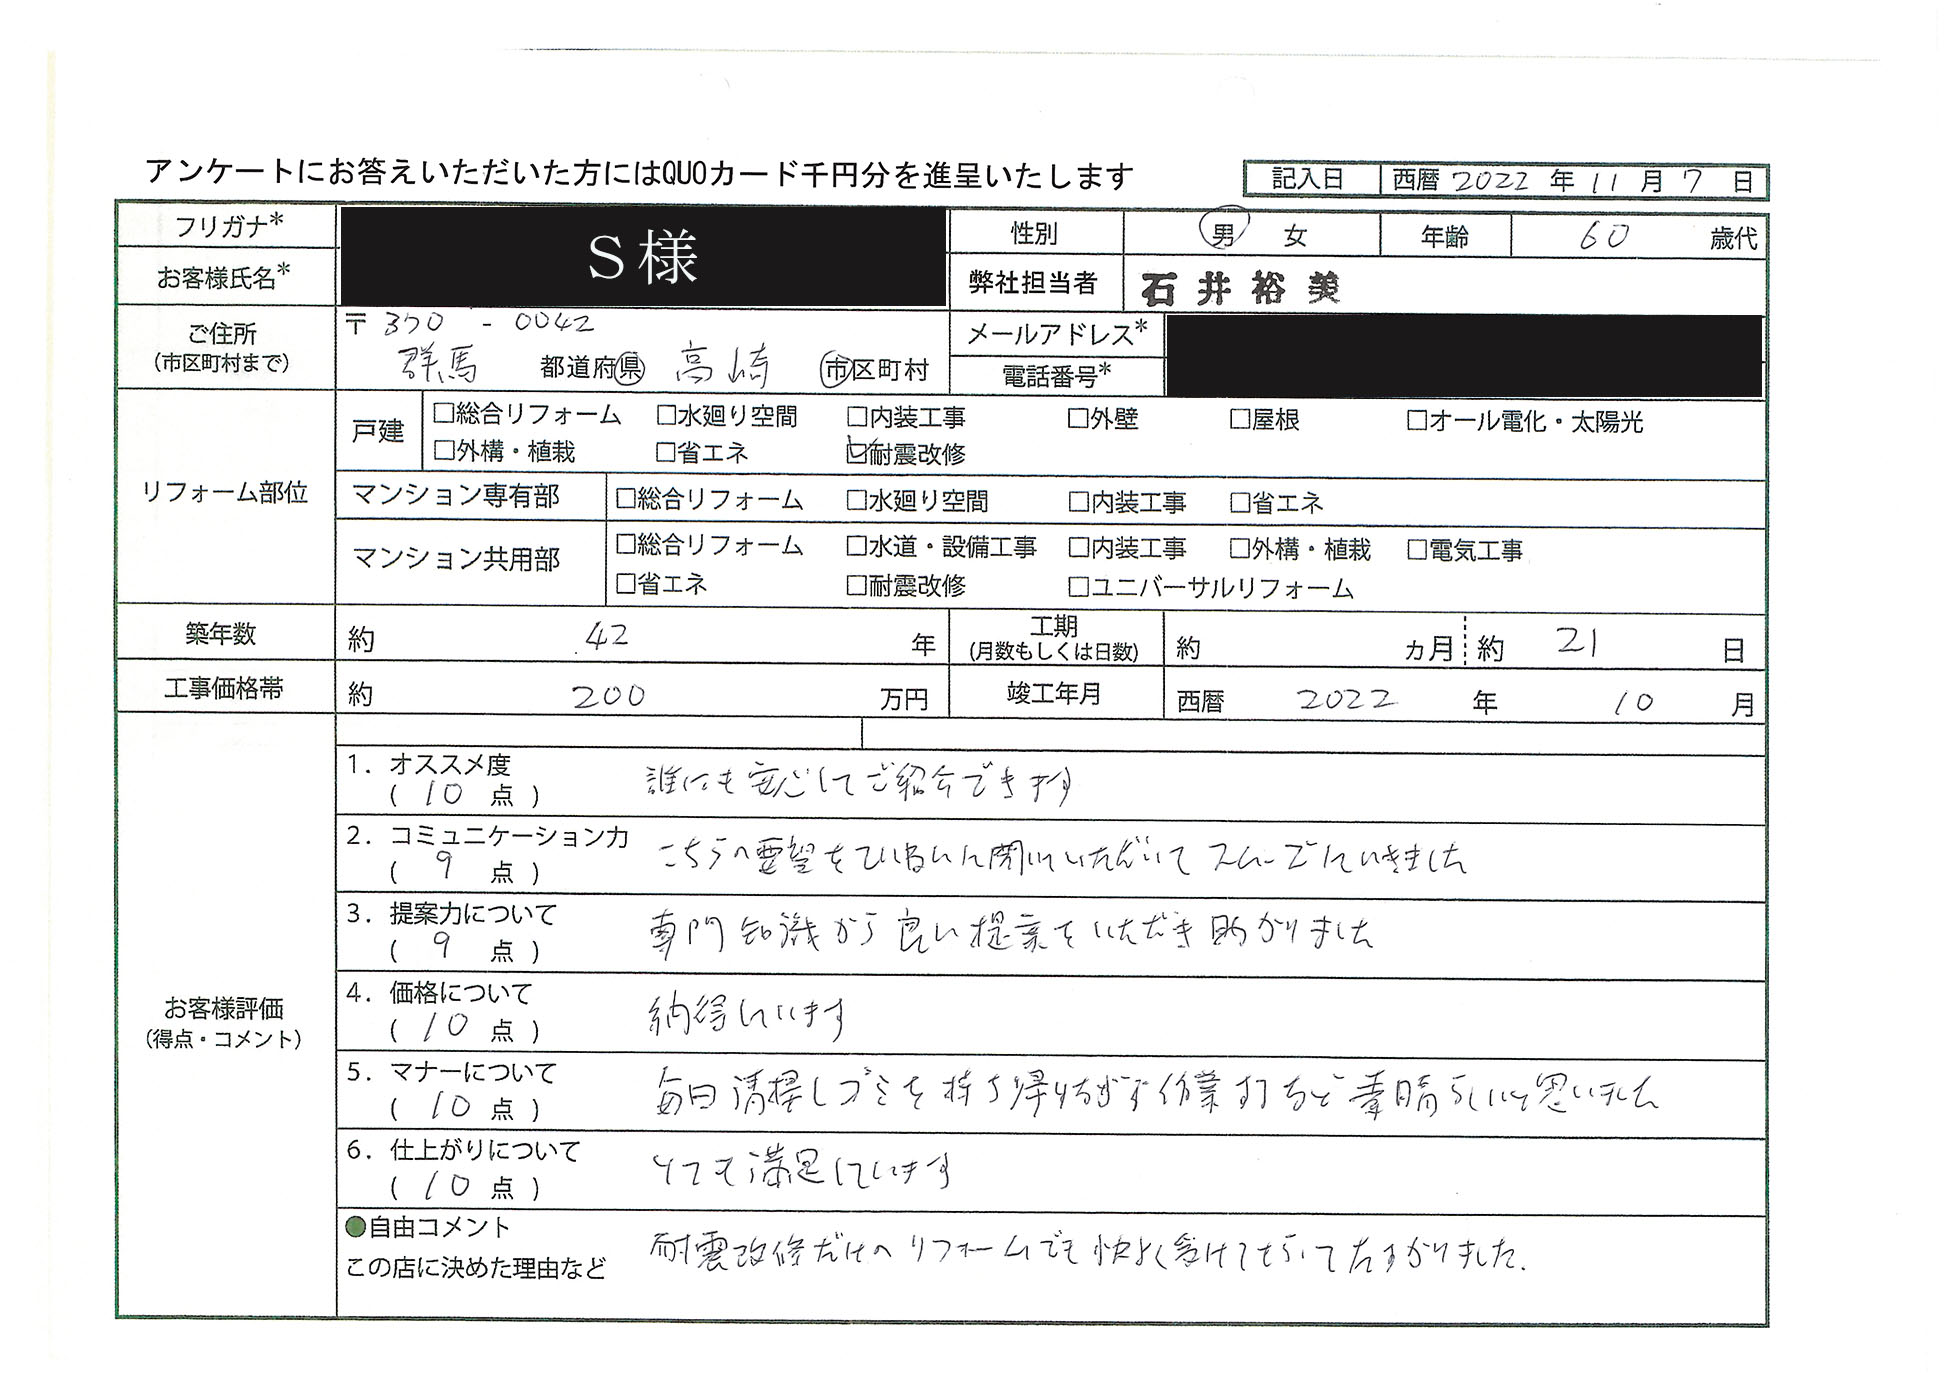 アンケートにお答えいただいた方にはQUOカード千円分を進呈いたします
記入日 西暦 2022 年 11 月 7 日
フリガナ* S様 性別 男 女 年齢 60 歳代
お客様氏名* 弊社担当者 石井裕美
ご住所 (市区町村まで) 〒 370 - 0042 メールアドレス*
群馬 都道府県 高崎 市区町村 電話番号*
リフォーム部位
戸建 □総合リフォーム □水廻り空間 □内装工事 □外壁 □屋根 □オール電化・太陽光
□外構・植栽 □省エネ ☑耐震改修
マンション専有部 □総合リフォーム □水廻り空間 □内装工事 □省エネ
マンション共用部 □総合リフォーム □水道・設備工事 □内装工事 □外構・植栽 □電気工事
□省エネ □耐震改修 □ユニバーサルリフォーム
築年数 約 42 年 工期 (月数もしくは日数) 約 カ月 約 21 日
工事価格帯 約 200 万円 竣工年月 西暦 2022 年 10 月
お客様評価
(得点・コメント)
1. オススメ度 ( 10 点 ) 誰にも安心してご紹介できます
2. コミュニケーション力 ( 9 点 ) こちらの要望をていねいに聞いていただいてスムーズにいきました
3. 提案力について ( 9 点 ) 専門知識から良い提案をいただき助かりました
4. 価格について ( 10 点 ) 納得しています
5. マナーについて ( 10 点 ) 毎日清掃しゴミを持ち帰り 作業 など素晴らしいと思いました
6. 仕上がりについて ( 10 点 ) とても満足しています
●自由コメント
この店に決めた理由など 耐震改修だけのリフォームでも快よく受けてもらってたすかりました.